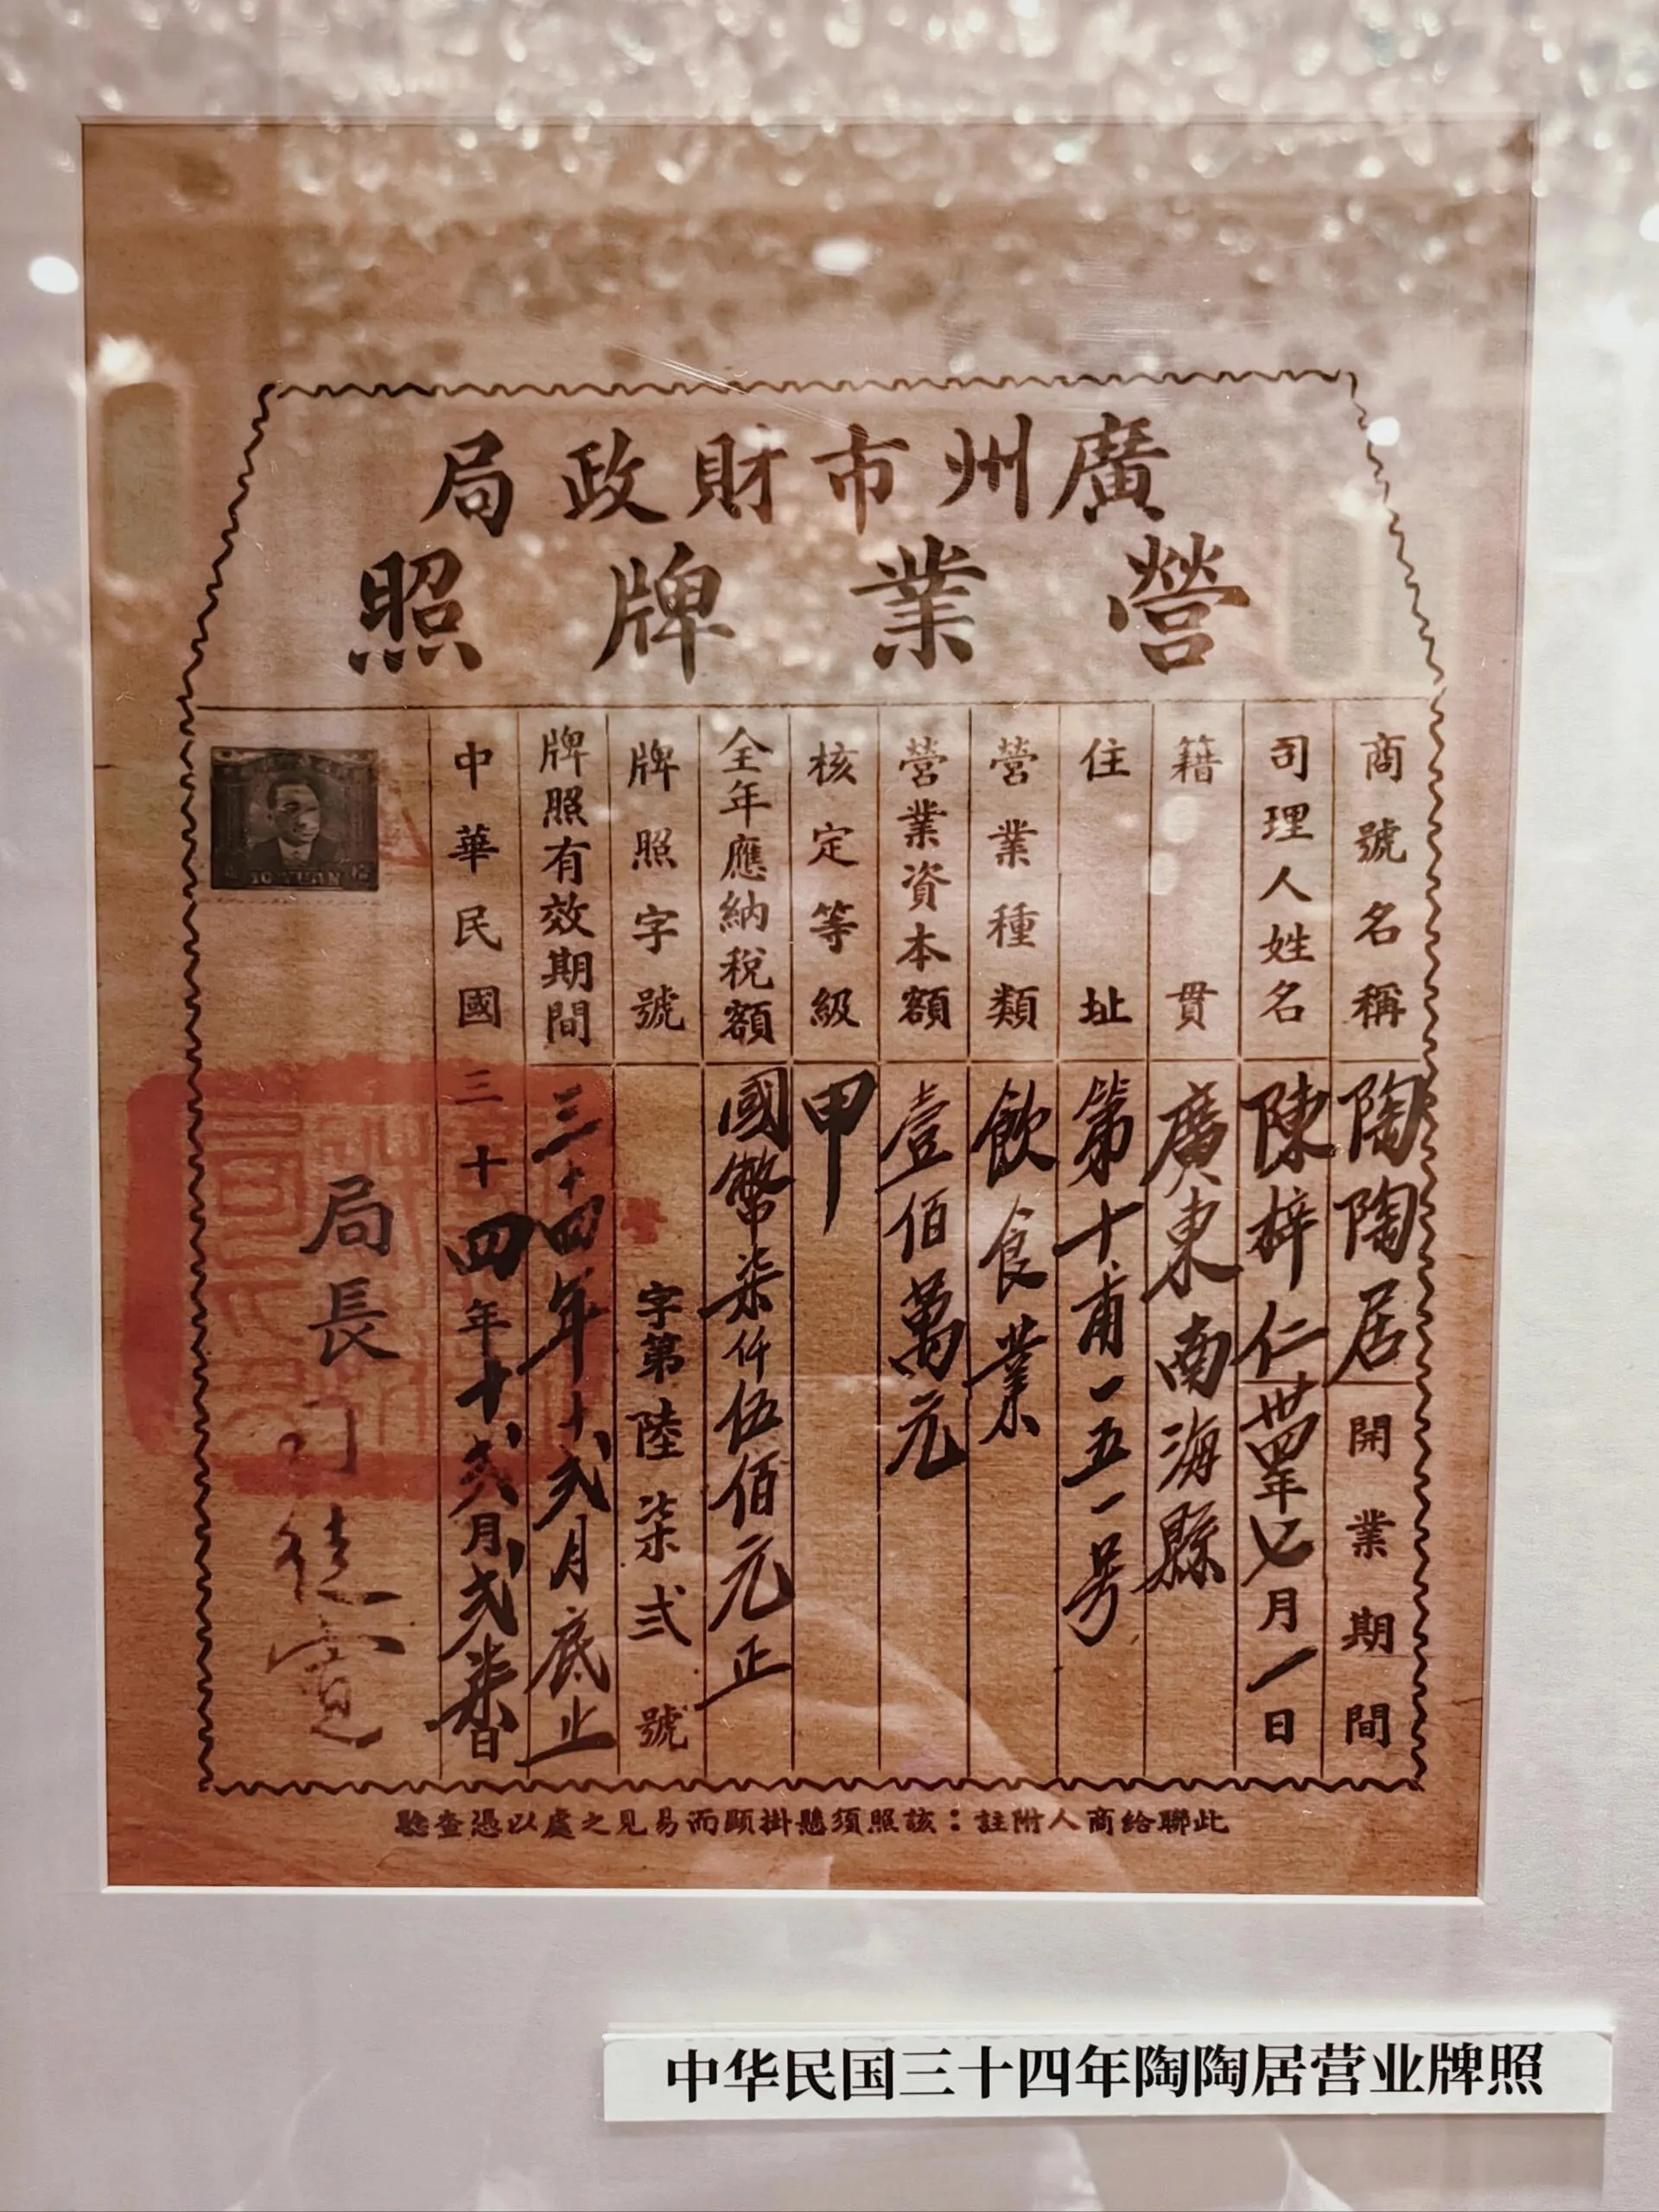 廣州市財政局
營業牌照
商號名稱 陶陶居 開業期間
司理人姓名 陳梓仁 卅四年七月一日
籍貫 廣東南海縣
住址 第十甫一五一号
營業種類 飲食業
營業資本額 壹佰萬元
核定等級 甲
全年應納稅額 國幣柒仟伍佰元正
牌照字號 字第陸柒弍號
牌照有效期間 三十四年十弍月底止
中華民國三十四年十弍月弍柒日
局長
10 YUAN
此聯給商人附註：該照須懸掛顯而易見之處以憑查驗
中华民国三十四年陶陶居营业牌照